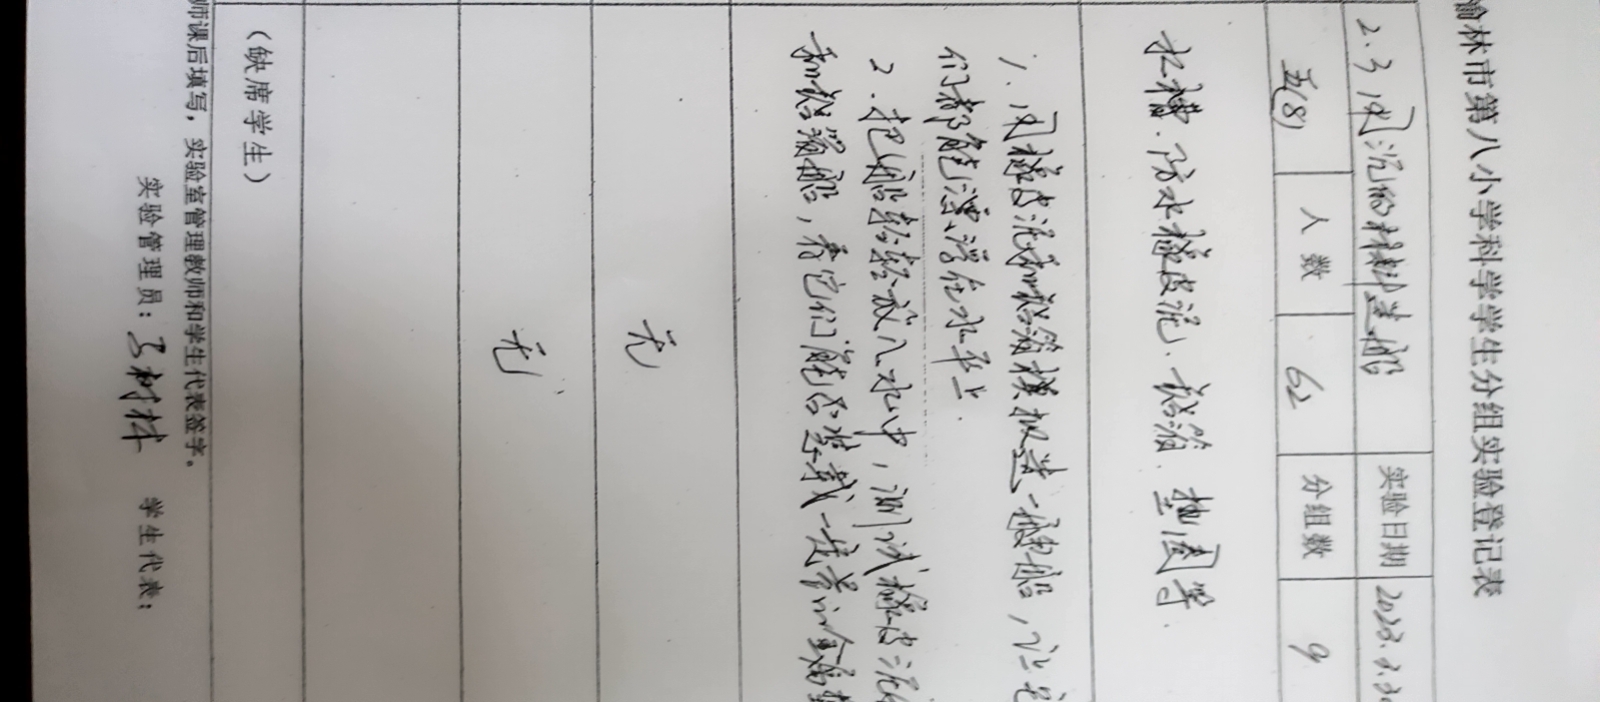 榆林市第八小学科学学生分组实验登记表
2.3 用沉的材料造船 实验日期 2023.3.30
五(8) 人数 62 分组数 9
水槽、防水橡皮泥、铝箔、垫圈等
1、用橡皮泥和铝箔模拟造一艘船，让它
们都能漂浮在水平上.
2、把船轻轻放入水中，测试橡皮泥船
和铝箔船，看它们能否装载一定量的金属垫
无
无
（缺席学生）
师课后填写，实验室管理教师和学生代表签字。
实验管理员： 学生代表：